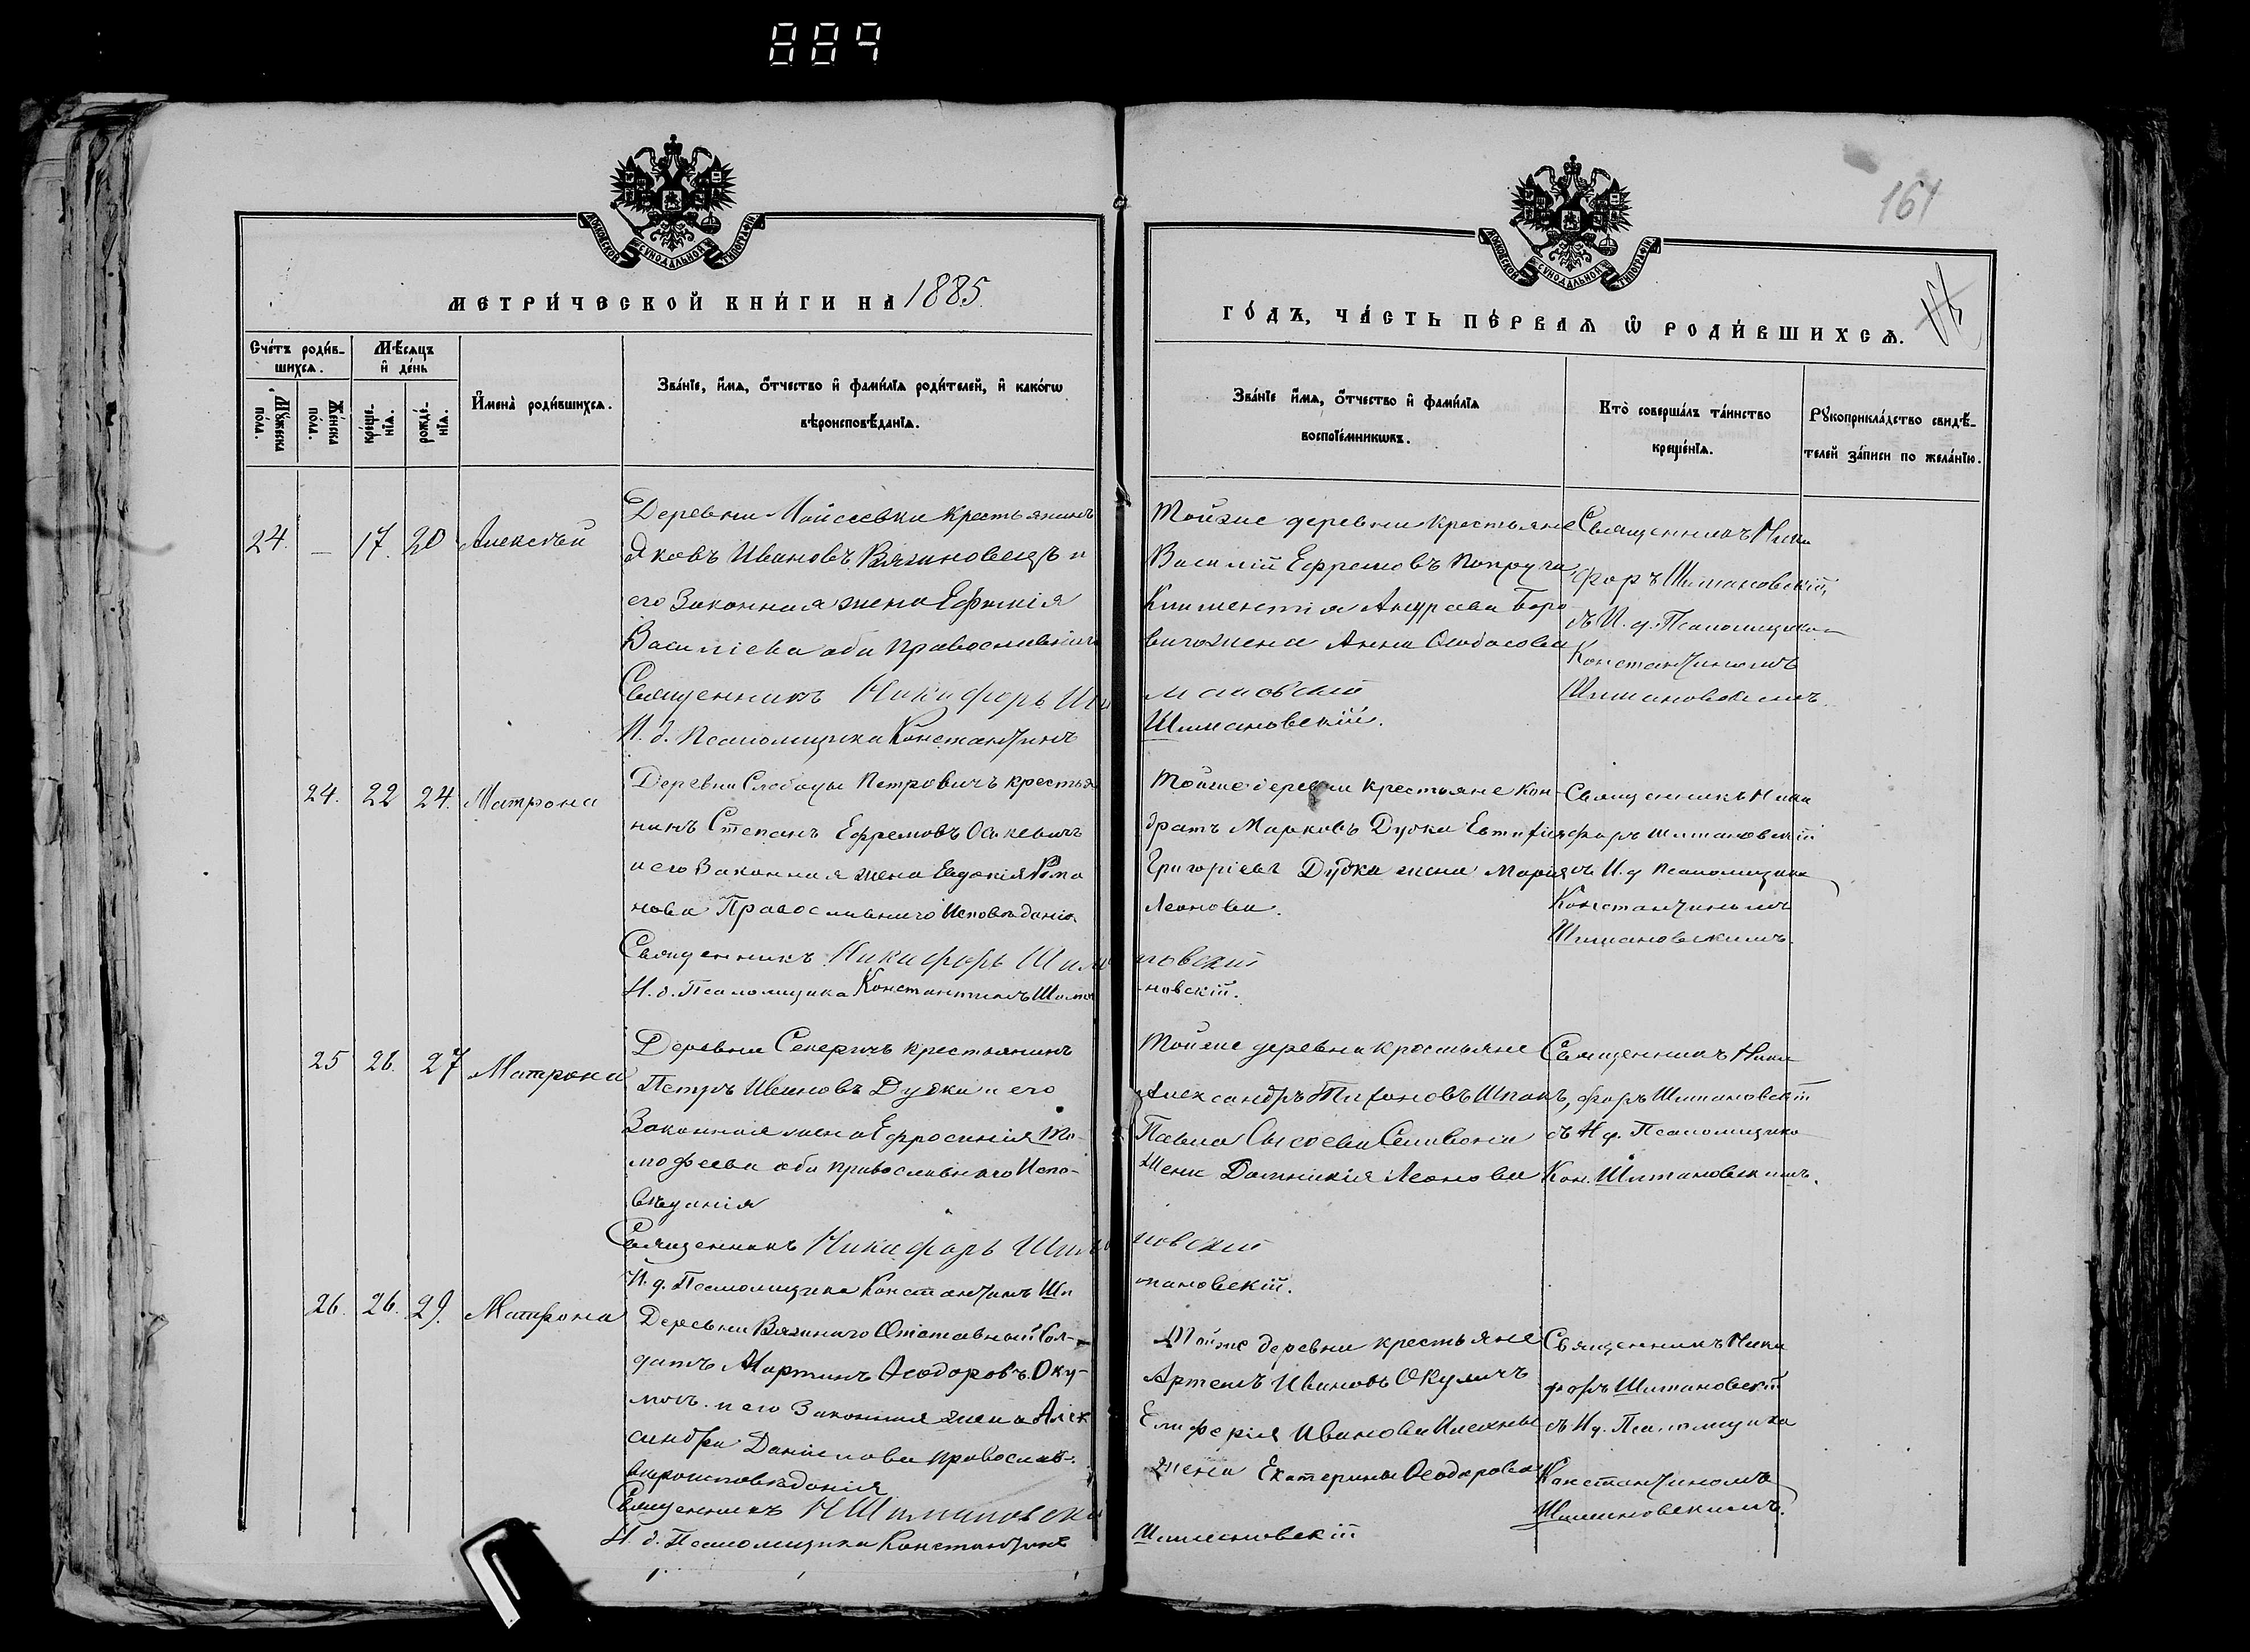 884
161
МОСКОВСКОЙ СУНОДАЛЬНОЙ ТИПОГРАФІИ
МОСКОВСКОЙ СУНОДАЛЬНОЙ ТИПОГРАФІИ
МЕТРИ́ЧЕСКОЙ КНИ́ГИ НА 1885
ГО́ДЪ, ЧА́СТЬ ПЕ́РВАѦ Ѡ РОДИ́ВШИХСѦ.
Сче́тъ роди́в-
шихсѧ.
Мꙋ́жеска пола.
Же́нска пола.
Мѣ́сѧцъ
и де́нь
креще́нїѧ.
рожде́нїѧ.
И҆мена̀ роди́вшихсѧ.
Зва́нїе, и҆́мѧ, ѻ҆́тчество и҆ фами́лїѧ роди́телей, и҆ како́гѡ
вѣроисповѣ́данїѧ.
Зва́нїе и҆́мѧ, ѻ҆́тчество и҆ фами́лїѧ
воспрїе́мникѡвъ.
Кто̀ соверша́лъ та́инство
креще́нїѧ.
Рꙋкоприкла́дство свидѣ́-
телей за́писи по жела́нїю.
24. — 17. 20 Алексѣй
Деревни Мойсеевки крестьянинъ
Яковъ Ивановъ Вязиновецъ и
его Законная жена Ефимія
Василіева оба Православнаго
Священникъ Никифоръ Ши
И. д. Псаломщика Константинъ
Тойже деревни крестьяне
Василій Ефремовъ Попруга
Климентія
жена Анна
мановскій
Шимановскій.
Священникъ Ники
форъ Шимановскій,
съ И. д. Псаломщика
Константиномъ
Шимановскимъ.
24. 22 24. Матрона
Деревни Слободы Петровичъ крестья
нинъ Степанъ Ефремовъ Оскевичъ
и его Законная жена Евдокія Рома
нова Православнаго Исповѣданія.
Священникъ Никифоръ Шима
И. д. Псаломщика Константинъ Шима
Тойже деревни крестьяне Кон-
дратъ Марковъ Дудка Евтихія
Григоріева Дудка жена Марія
Леонова.
новскій
новскій.
Священникъ Ники
форъ Шимановскій
съ И. д Псаломщика
Константиномъ
Шимановскимъ.
25 26. 27 Матрона
Деревни Секеричъ крестьянинъ
Петръ Ивановъ Дудка и его
Законная жена Ефросинія Ти-
мофеева оба православнаго Испо-
вѣданія
Священникъ Никифоръ Шима
И. д. Псаломщика Константинъ Ши
Тойже деревни крестьяне
Александръ Тихоновъ Шпакъ,
Павла Сысоева Селивона
жена Домникія Леонова
новскій
мановскій.
Священникъ Ники
форъ Шимановскій
съ И д. Псаломщика
Кон. Шимановскимъ.
26. 26. 29. Матрона
Деревни Вязинаго Отставный Сол-
датъ Мартинъ Ѳеодоровъ Оку-
личъ и его Законная жена Алек
сандра Даніилова православ-
вѣроисповѣданія
Священникъ Н Шимановскій
И. д. Псаломщика Константинъ
Тойже деревни крестьяне
Артемъ Ивановъ Окуличъ
Елиферія Иванова
жена Екатерина Ѳеодорова
Шимановскій
Священникъ Ники
форъ Шимановскій
съ И д. Псаломщика
Константиномъ
Шимановскимъ.